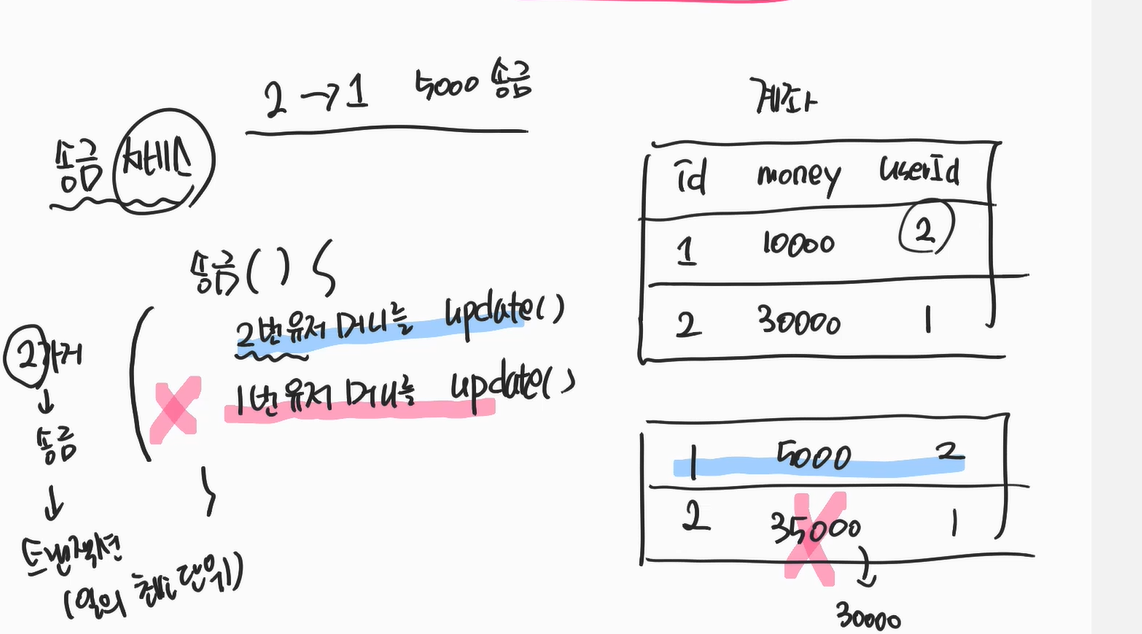 2 → 1 5000 송금
송금 서비스
송금() {
2번유저 머니를 update()
1번유저 머니를 update()
}
2가지
↓
송금
↓
트랜잭션
(일의 최소 단위)
계좌
id money userId
1 10000 2
2 30000 1
1 5000 2
2 35000 1
30000